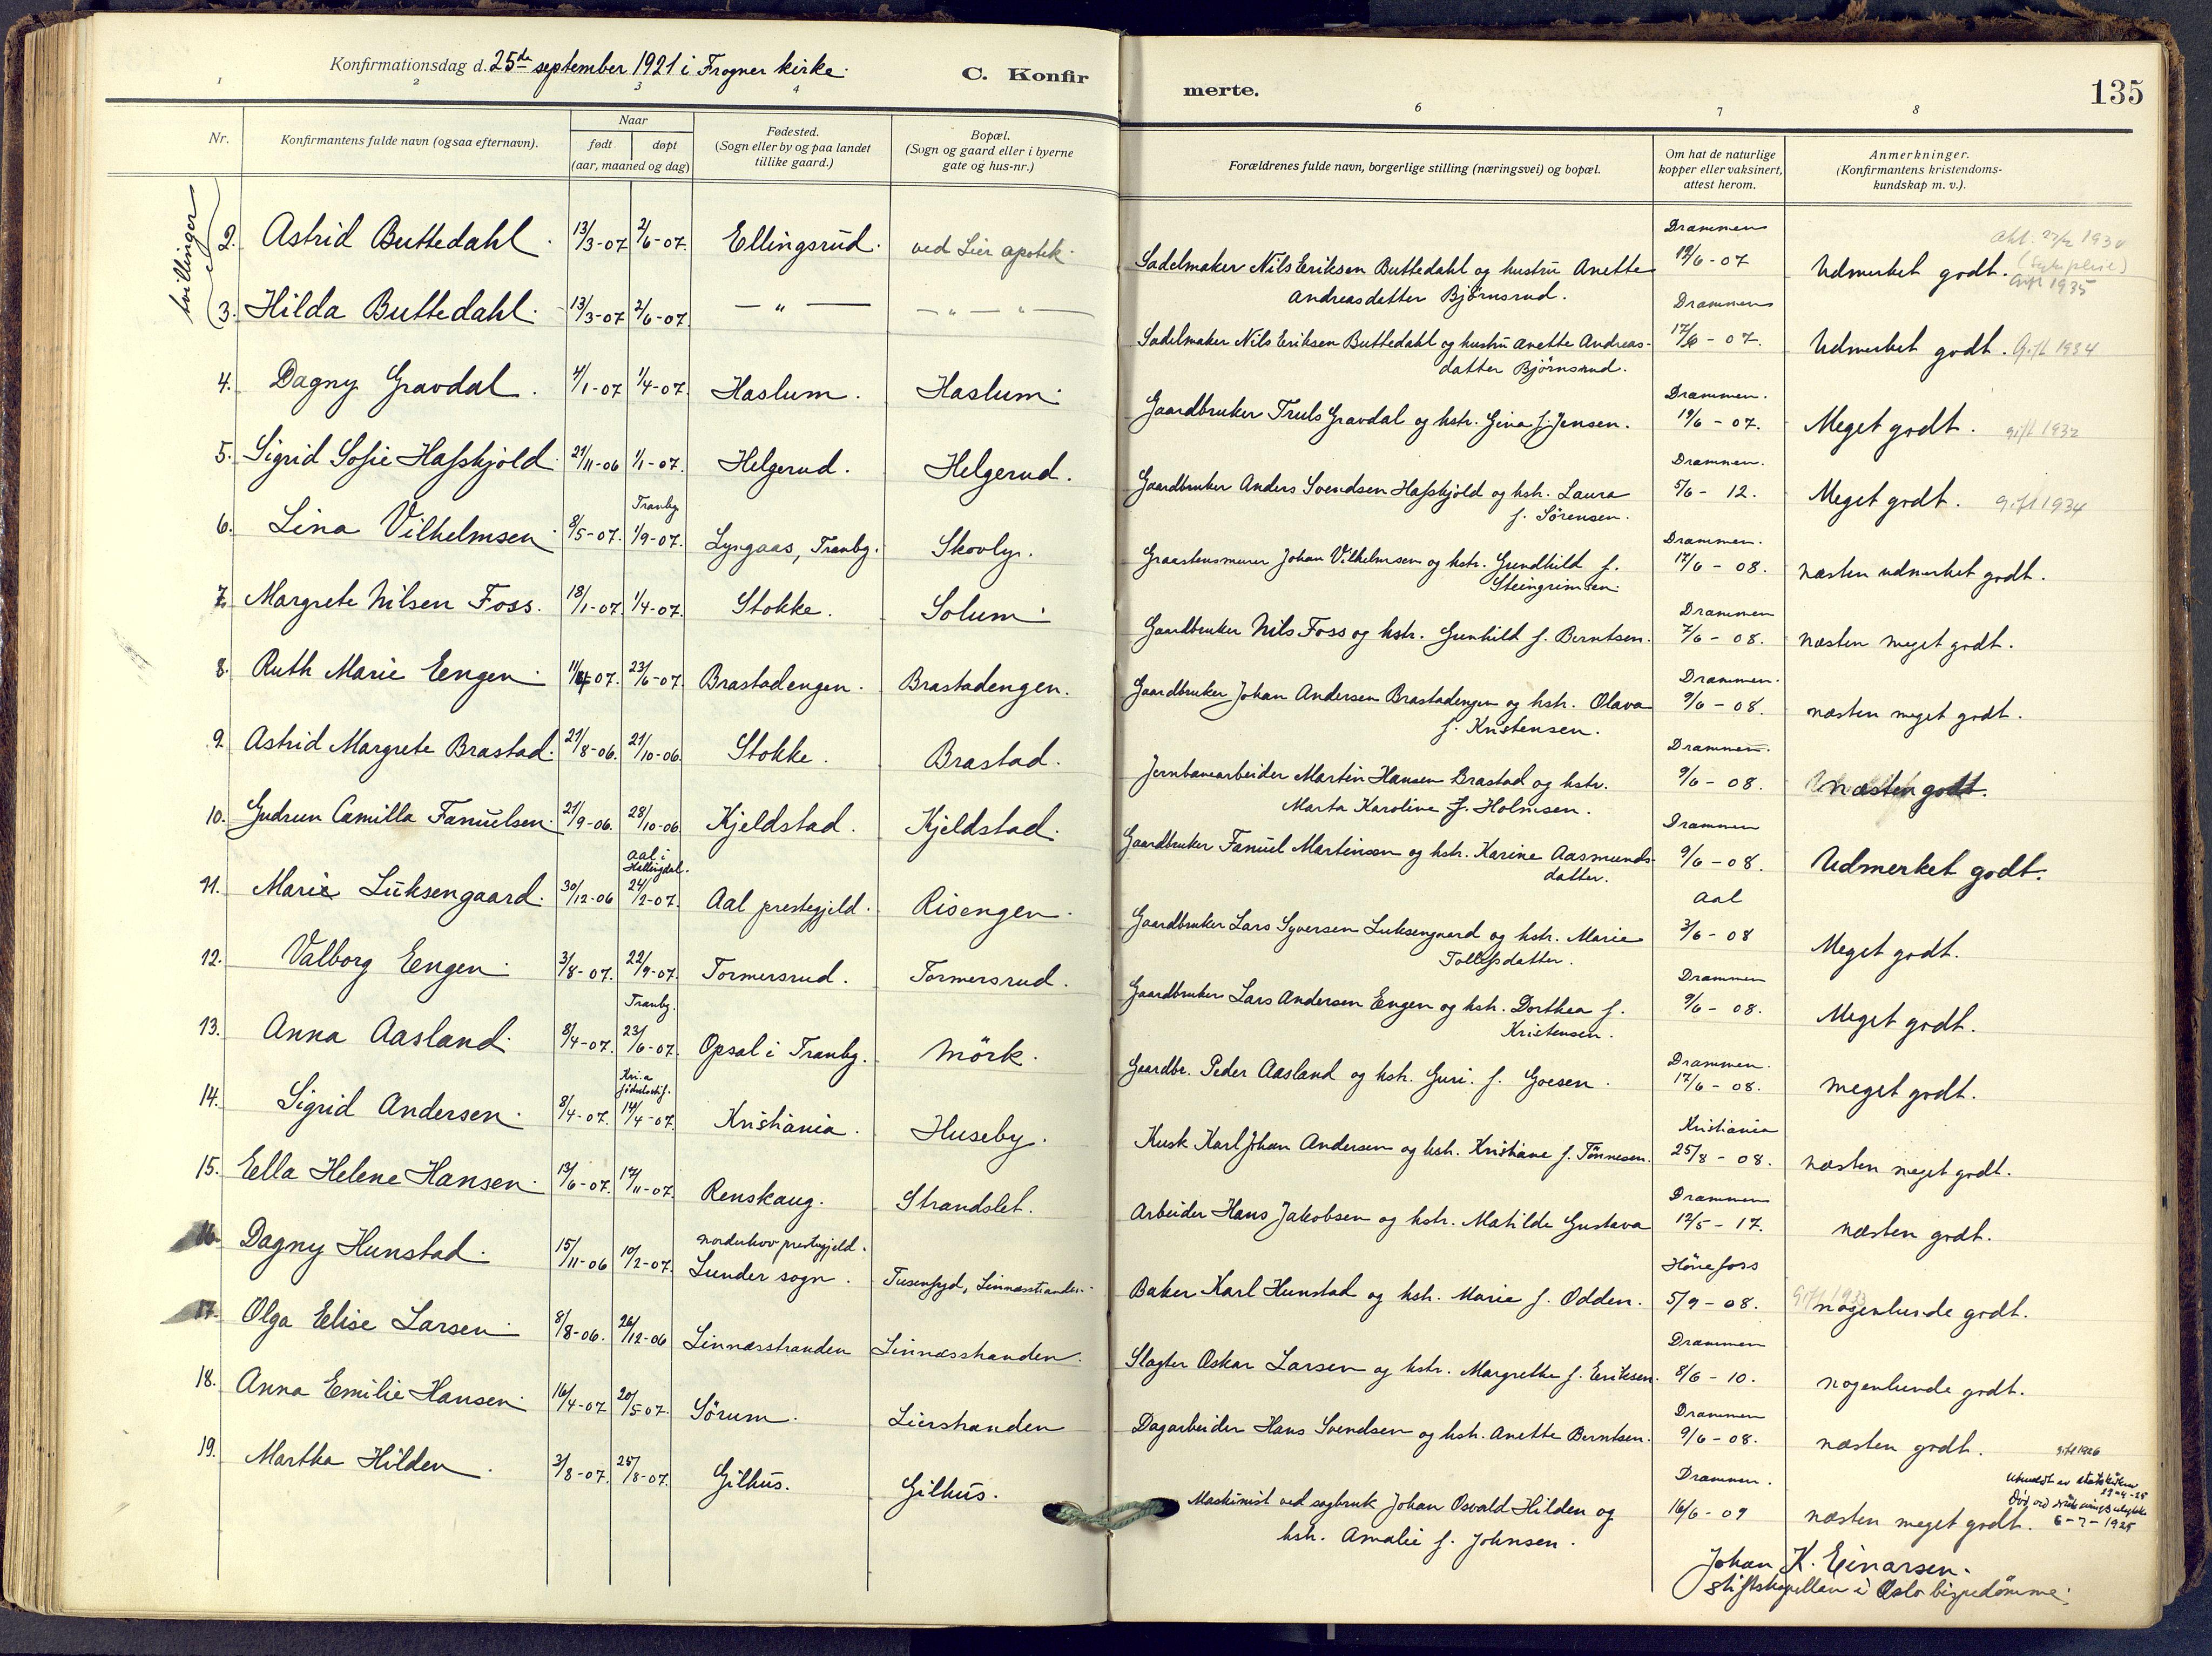 Konfirmationsdag d. 25de september 1921 i Frogner kirke.
C. Konfirmerte.
135
1 2 3 4 6 7 8
Nr. Konfirmantens fulde navn (ogsaa efternavn). Naar født døpt (aar, maaned og dag) Fødested. (Sogn eller by og paa landet tillike gaard.) Bopæl. (Sogn og gaard eller i byerne gate og hus-nr.) Forældrenes fulde navn, borgerlige stilling (næringsvei) og bopæl. Om hat de naturlige kopper eller vaksinert, attest herom. Anmerkninger. (Konfirmantens kristendoms-kundskap m. v.).
tvillinger
2. Astrid Buttedahl. 13/3-07 2/6-07. Ellingsrud. ved Lier apotek. Sadelmaker Nils Eriksen Buttedahl og hustru Anette Andreasdatter Bjørnsrud. Drammen 19/6-07 Udmerket godt. gift 1935
3. Hilda Buttedahl. 13/3-07 2/6-07. — " — — " — " — Sadelmaker Nils Eriksen Buttedahl og hustru Anette Andreas-datter Bjørnsrud. Drammen 17/6-07. Udmerket godt. Gift 1934
4. Dagny Gravdal. 4/1-07 1/4-07. Haslum. Haslum. Gaardbruker Truls Gravdal og hstr. Gina f. Jensen. Drammen. 19/6-07. Meget godt. gift 1932
5. Sigrid Sofie Hafskjold 21/11-06 1/1-07. Helgerud. Helgerud. Gaardbruker Anders Svendsen Hafskjold og hstr. Laura f. Sørensen. Drammen. 5/6-12. Meget godt. gift 1934
6. Lina Vilhelmsen 8/5-07. Tranby 1/9-07. Lyngaas, Tranby. Skovly. Graastensmurer Johan Vilhelmsen og hstr. Gundhild f. Steingrimsen. Drammen. 17/6-08. næsten udmerket godt.
7. Margrete Nilsen Foss. 18/1-07. 1/4-07. Stokke. Solum. Gaardbruker Nils Foss og hstr. Gunhild f. Berntsen. Drammen 7/6-08. næsten meget godt.
8. Ruth Marie Eengen. 11/4-07. 23/6-07. Brastadengen. Brastadengen. Gaardbruker Johan Andersen Brastadengen og hstr. Olava f. Kristensen. Drammen. 9/6-08. næsten meget godt.
9. Astrid Margrete Brastad. 21/8-06. 21/10-06. Stokke. Brastad. Jernbanearbeider Martin Hansen Brastad og hstr. Marta Karoline f. Holmsen. Drammen. 9/6-08. næsten godt.
10. Gudrun Camilla Fanuelsen. 21/9-06. 28/10-06. Kjeldstad. Kjeldstad. Gaardbruker Fanuel Martinsen og hstr. Karine Aasmunds-datter. Drammen 9/6-08. Udmerket godt.
11. Marie Luksengaard. 30/12-06 Aal i Hallingdal. 24/2-07. Aal prestegjeld. Risengen. Gaardbruker Lars Syversen Luksengaard og hstr. Marie Tollefsdatter. Aal 3/6-08 Meget godt.
12. Valborg Eengen. 3/8-07. 22/9-07. Tormersrud. Tormersrud. Gaardbruker Lars Andersen Engen og hstr. Dorthea f. Kristensen. Drammen 9/6-08. Meget godt.
13. Anna Aasland. 8/4-07. Tranby. 23/6-07. Opsal i Tranby. Mörk. Gaardbr. Peder Aasland og hstr. Guri f. Goesen. Drammen. 17/6-08. meget godt.
14. Sigrid Andersen. 8/4-07. Kr.a fødselsstif. 14/4-07. Kristiania. Huseby. Kusk Karl Johan Andersen og hstr. Kristiane f. Tönnesen. Kristiania 25/8-08. næsten meget godt.
15. Eella Helene Hansen. 13/6-07. 17/11-07. Renskaug. Strandslet. Arbeider Hans Jakobsen og hstr. Matilde Gustava Drammen 12/5-17. næsten godt.
16. Dagny Hunstad. 15/11-06 10/2-07. norderhov prestegjeld. Lunder sogn. Tusenfryd, Linnæsstranden. Baker Karl Hunstad og hstr. Marie f. Odden. Hönefoss 5/9-08. Gift 1933 nogenlunde godt.
17. Olga Elise Larsen. 8/8-06. 26/12-06 Linnæsstranden Linnæsstranden. Slagter Oskar Larsen og hstr. Margrethe f. Eriksen. Drammen 8/6-10. nogenlunde godt.
18. Anna Emilie Hansen. 16/4-07 20/5-07. Sörum. Lierstranden Dagarbeider Hans Svendsen og hstr. Anette Berntsen. Drammen 9/6-08. næsten godt. gift 1926
19. Martha Hilden. 3/8-07. 25/8-07. Gilhus. Gilhus. Maskinist ved sagbruk Johan Osvald Hilden og hstr. Amalie f. Johnsen. Drammen. 16/6-09 næsten meget godt. Utmeldt av statskirken Död ved drukningsulykke 6-7-1925
Johan K. Einarsen.
stiftskapellan i Oslo bispedömme.